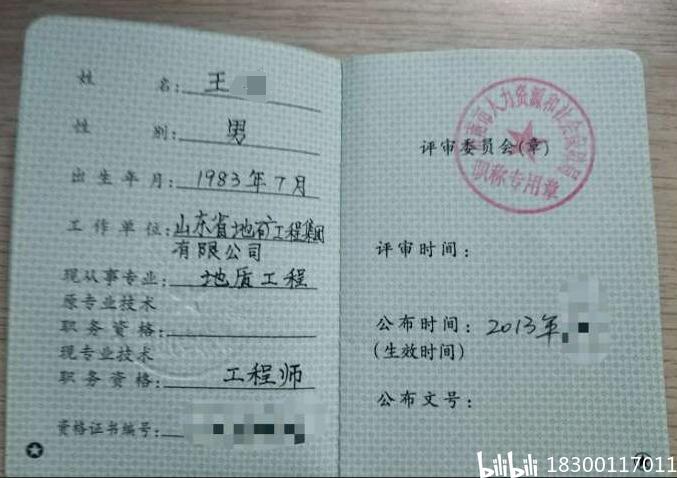 姓 名：王
性 别：男
出生年月：1983年7月
工作单位：山东省地矿工程集团
有限公司
现从事专业：地质工程
原专业技术
职务资格：
现专业技术
职务资格：工程师
资格证书编号：
市人力资源和社会保障局
职称专用章
评审委员会(章)
评审时间：
公布时间：2013年
(生效时间)
公布文号：
bilibili 18300117011